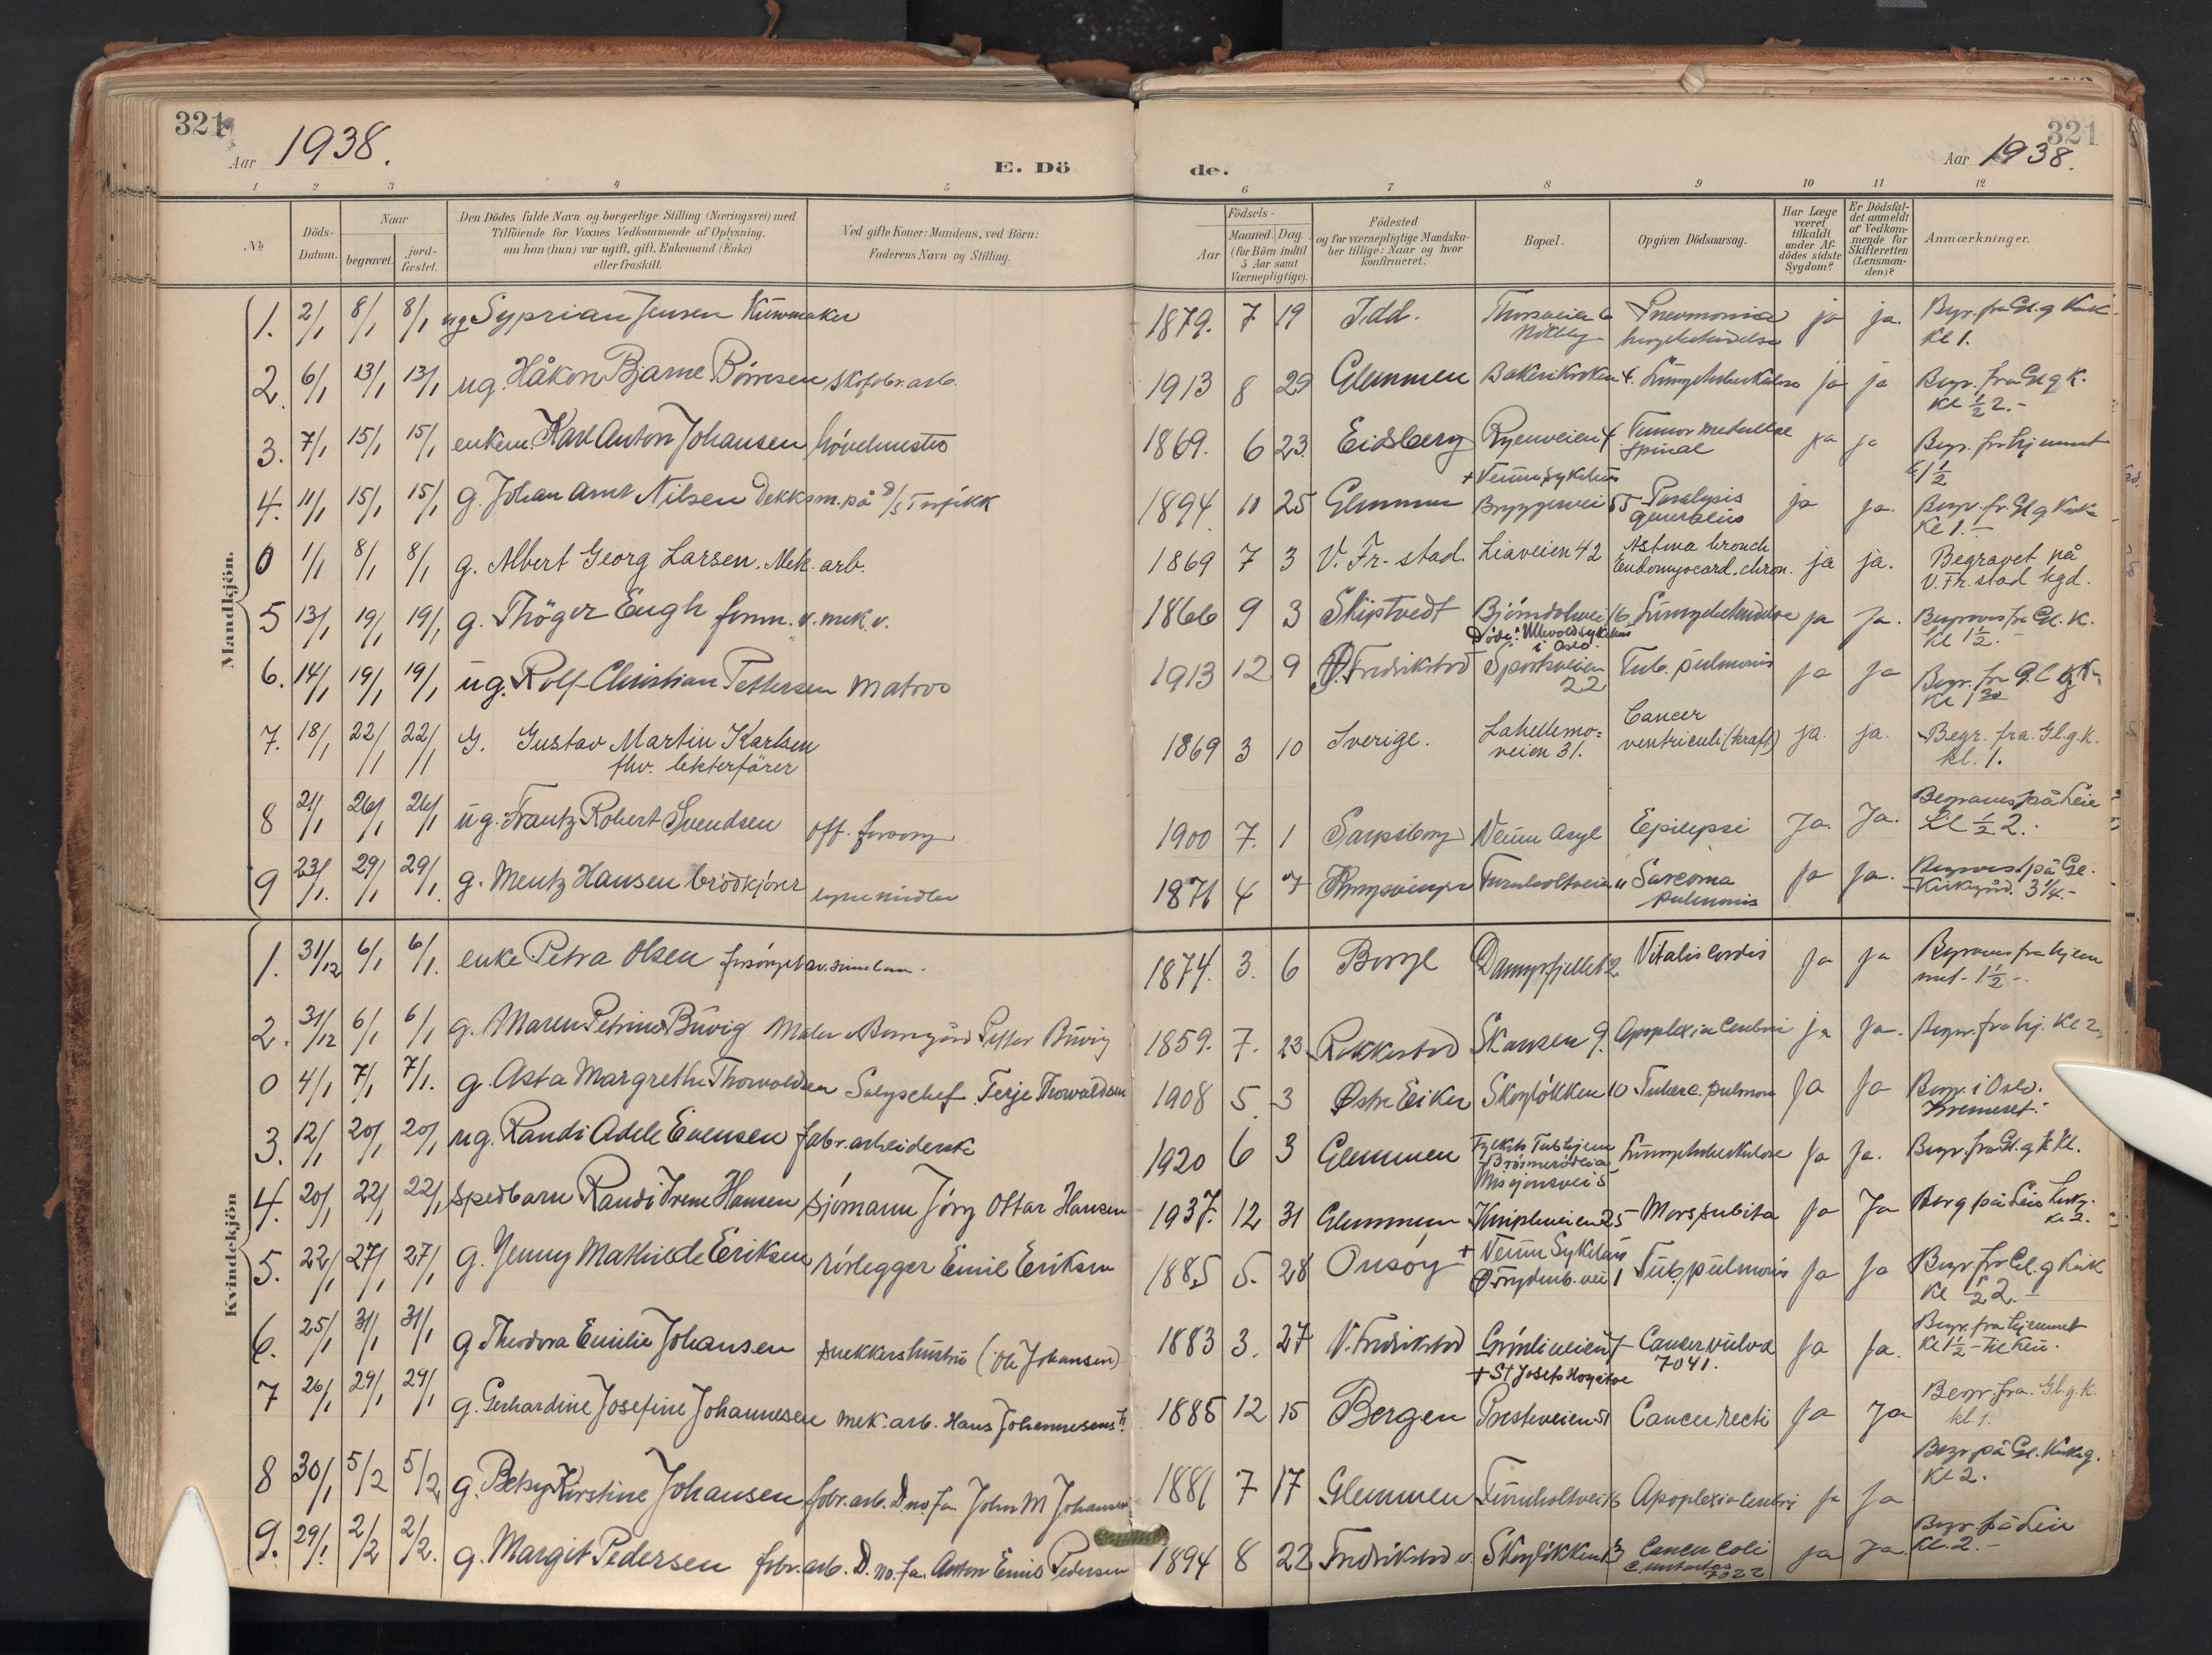 321
Aar 1938.
E. Dö
1 2 3 4 5
No
Döds-Datum.
Naar
begravet.
jord-fæstet.
Den Dödes fulde Navn og borgerlige Stilling (Næringsvei) med
Tilföiende for Voxnes Vedkommende af Oplysning,
om han (hun) var ugift, gift, Enkemand (Enke)
eller fraskilt.
Ved gifte Koner: Mandens, ved Börn:
Faderens Navn og Stilling.
Mandkjön.
1. 2/1 8/1 8/1 ug Syprian Jensen
2. 6/1 13/1 13/1 ug. Håkon Bjarne Börresen skofabr. arb.
3. 7/1 15/1 15/1 enkem. Karl Anton Johansen hövelmester
4. 11/1 15/1 15/1 g. Johan Arnt Nilsen Dekksm. på D/S
0 1/1 8/1 8/1 g. Albert Georg Larsen. Mek. arb.
5 13/1 19/1 19/1 g. Thöger Eugh form. v. mek. v.
6. 14/1 19/1 19/1 ug. Rolf Christian Pettersen Matros
7. 18/1 22/1 22/1 G. Gustav Martin Karlsen
fhv. lekterförer
8 21/1 26/1 26/1 ug. Frantz Robert Svendsen off. forsorg
9 23/1. 29/1 29/1. g. Mentz Hansen brödkjörer egne midler
Kvindekjön
1. 31/12 6/1 6/1. enke Petra Olsen forsörget av sine barn.
2. 31/12 6/1 6/1 g. Maren Petrine Buvig Maler Petter Buvig
0 4/1 7/1 7/1. g. Asta Margrethe Thorvaldsen Salgschef Terje Thorvaldsen
3. 12/1 20/1 20/1 ug. Randi Adele Evensen fabr. arbeiderske
4. 20/1 22/1 22/1 spedbarn Randi Irene Hansen sjömann Jörg Ottar Hansen
5. 22/1 27/1 27/1 g. Jenny Mathilde Eriksen rörlegger Emil Eriksen
6. 25/1 31/1 31/1 g Theodora Emilie Johansen snekkershustru (Ole Johansen)
7 26/1 29/1 29/1 g. Gerhardine Josefine Johannesen mek. arb. Hans Johannesens h.
8 30/1 5/2 5/2 g. Betsy Kirstine Johansen fabr. arb. D. no. fa John M Johansen
9. 29/1. 2/2 2/2. g. Margit Pedersen fabr. arb. D. no. fa. Anton Emil Pedersen
321
de.
Aar 1938.
6 7 8 9 10 11 12
Födsels-
Aar
Maaned. Dag.
(for Börn indtil
5 Aar samt
Værnepligtige).
Födested
og for værnepligtige Mandska-
ber tillige: Naar og hvor
konfirmeret.
Bopæl.
Opgiven Dödsaarsag.
Har Læge
været
tilkaldt
under Af-
dödes sidste
Sygdom?
Er Dödsfal-
det anmeldt
af Vedkom-
mende for
Skifteretten
(Lensman-
den)?
Anmærkninger.
1879. 7 19 Idd. Thorsveien 6 Pneumonia ja ja. Begr. fra Gl. g Kirk
kl 1.
1913 8 29 Glemmen Bakerikroken 4. Lungetuberkulose ja ja Begr. fra Gl g K.
kl ½ 2.-
1869. 6 23. Eidsberg Ryenveien 4 Tumor medullae ja ja Begr. fra hjemmet
spinal 1½
+ Veum Sykehus
1894 10 25 Glemmen Bryggerivei 55 Paralysis ja ja. Begr. fr. Gl g Kirke
generalis Kl 1.-
1869 7 3 V. Fr.-stad. Liaveien 42 Astma bronch ja ja. Begravet på
Endomyocard. chron. V. Fr. stad kgd.
1866 9 3 Skiptvedt Björndalsvei 16 Lungebetendelse ja ja. Begraves fra Gl. K.
Döde: Ullevold sykehus i Oslo. Kl 1½.-
1913 12 9 V. Fredrikstad Sportsveien Tub. pulmonis ja ja Begr. fra Gl g K.
22 Kl 1 30
1869 3 10 Sverige. Lahellemo- Cancer ja. ja. Begr. fra. Gl. g. K.
veien 31. ventriculi (kræft) kl. 1.
1900 7. 1 Sarpsborg Veum Asyl Epilepsi Ja. Ja. Begraves på Leie
Kl ½ 2.
1871 4 7 Kongsvinger Furuholtveien 11 Sarcoma ja ja. Begraves på Gl.
pulmonis Kirkegård. 3¼.-
1874. 3. 6 Borge Damyrfjellet 2 Vitalis cordis ja ja Begraves fra hjem
met - 1½ -.
1859. 7. 23 Rakkestad Skansen 9. Apoplexia Cerebri ja ja. Begr. fra hj. Kl 2.
1908 5. 3 Östre Eiker Skoglökken 10 Tuberc. pulmon ja ja Begr. i Oslo.
Kremeret.
1920 6 3 Glemmen Fylkets Tub.hjem Lungetuberkulose ja ja. Begr. fra Gl. g k Kl.
Misjonsvei 5
1937. 12 31 Glemmen Knipleveien 25 Mors subita ja Ja Begr på Leie Kirkg.
Kl 2.
1885 5. 28 Onsöy + Veum Sykehus Tub. pulmonis ja ja Begr. fra Gl. g Kirk
Kl ½ 2.-
1883 3. 27 V. Fredrikstad Grönliveien 7 Cancer vulva ja ja. Begr. fra hjemmet
+ St Josefs Hospital 7041. Kl 1½ - til Leie.
1885 12 15 Bergen Presteveien 51 Cancer recti ja ja Begr. fra. Gl. g. K.
kl. 1.
1881 7 17 Glemmen Furuholtvei 16 Apoplexia Cerebri ja ja Begr på Gl. Kirkeg.
Kl 2.
1894 8 22 Fredrikstad v. Skoglökken 13 Cancer coli ja ja. Begr. på Leie
7022 Kl. 2.-